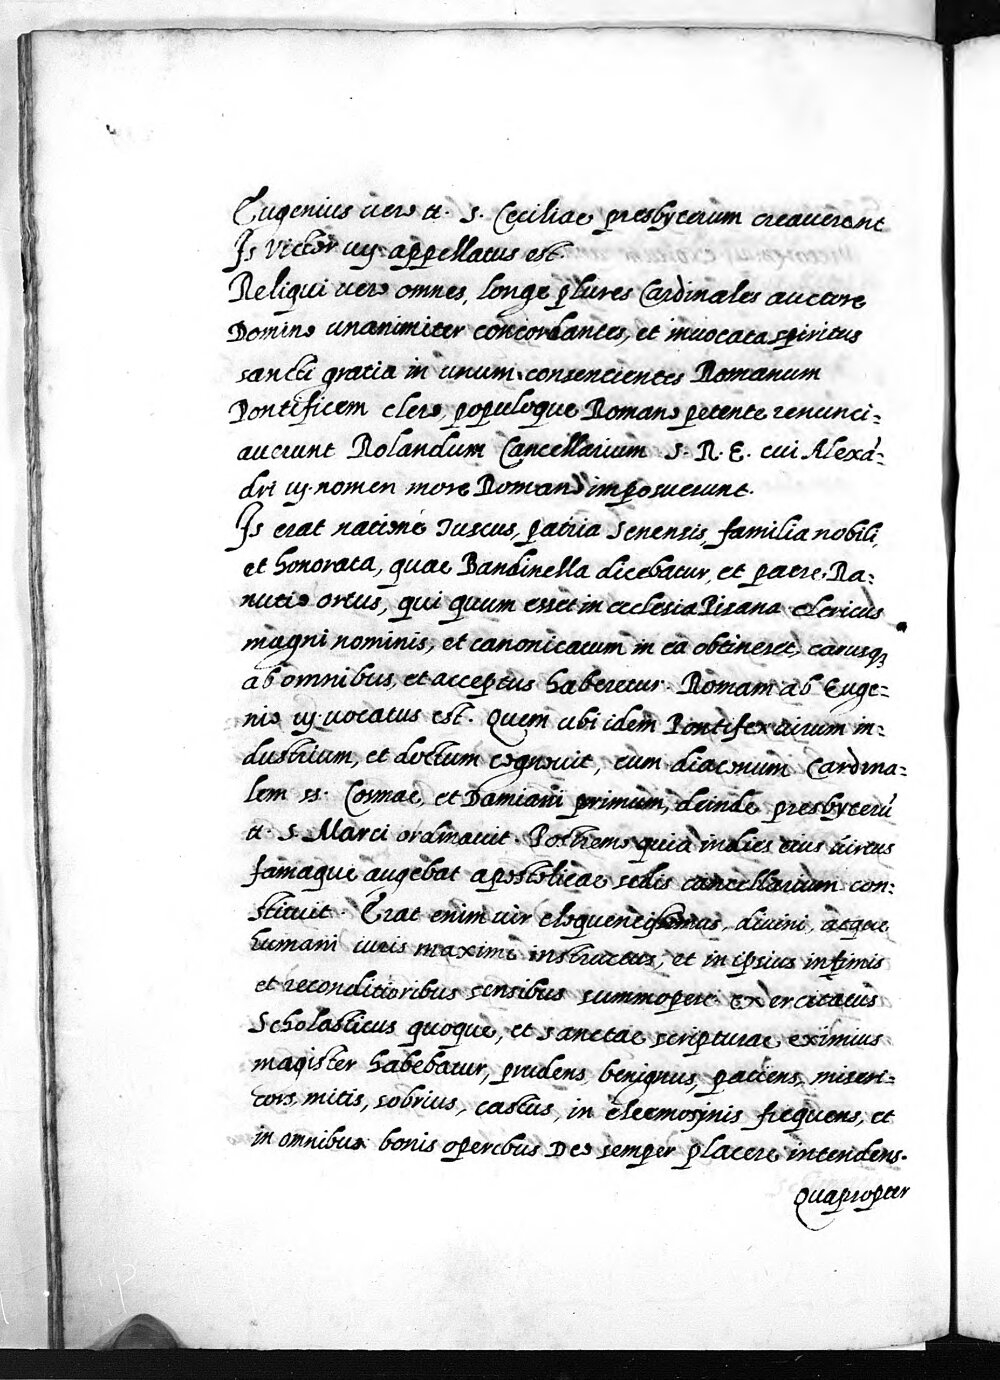 Eugenius uero tt. S. Ceciliae presbyterum creauerunt
Is Victor iiij appellatus est.
Reliqui uero omnes, longe plures Cardinales auctore
Domino unanimiter concordantes, et inuocata spiritus
sancti gratia in unum consencientes Romanum
Pontificem clero, populoque Romano petente renunci=
auerunt Rolandum Cancellarium S. R. E. cui Alexā=
dri iij. nomen more Romano imposuerunt.
Is erat natione Tuscus, patria Senensis, familia nobili,
et honorata, quae Bandinella dicebatur, et patre Ra=
nutio ortus, qui quum esset in ecclesia Pisana clericus
magni nominis, et canonicatum in ea obtineret, carusq3
ab omnibus, et acceptus haberetur. Romam ab Euge=
nio iij. uocatus est. Quem ubi idem Pontifex uirum in=
dustrium, et doctum cognouit, eum diaconum Cardina=
lem ss. Cosmae, et Damiani primum, deinde presbyterū
tt. S. Marci ordinauit. Postremo quia indies eius uirtus
famaque augebat apostolicae sedis cancellarium con=
stituit. Erat enim uir eloquentissimus, diuini, atque
humani iuris maxime instructus, et in ipsius intimis
et reconditioribus sensibus summopere exercitatus
Scholasticus quoque, et sanctae scripturae eximius
magister habebatur, prudens, benignus, patiens, miseri=
cors, mitis, sobrius, castus, in eleemosynis frequens, et
in omnibus bonis operibus Deo semper placere intendens.
Quapropter